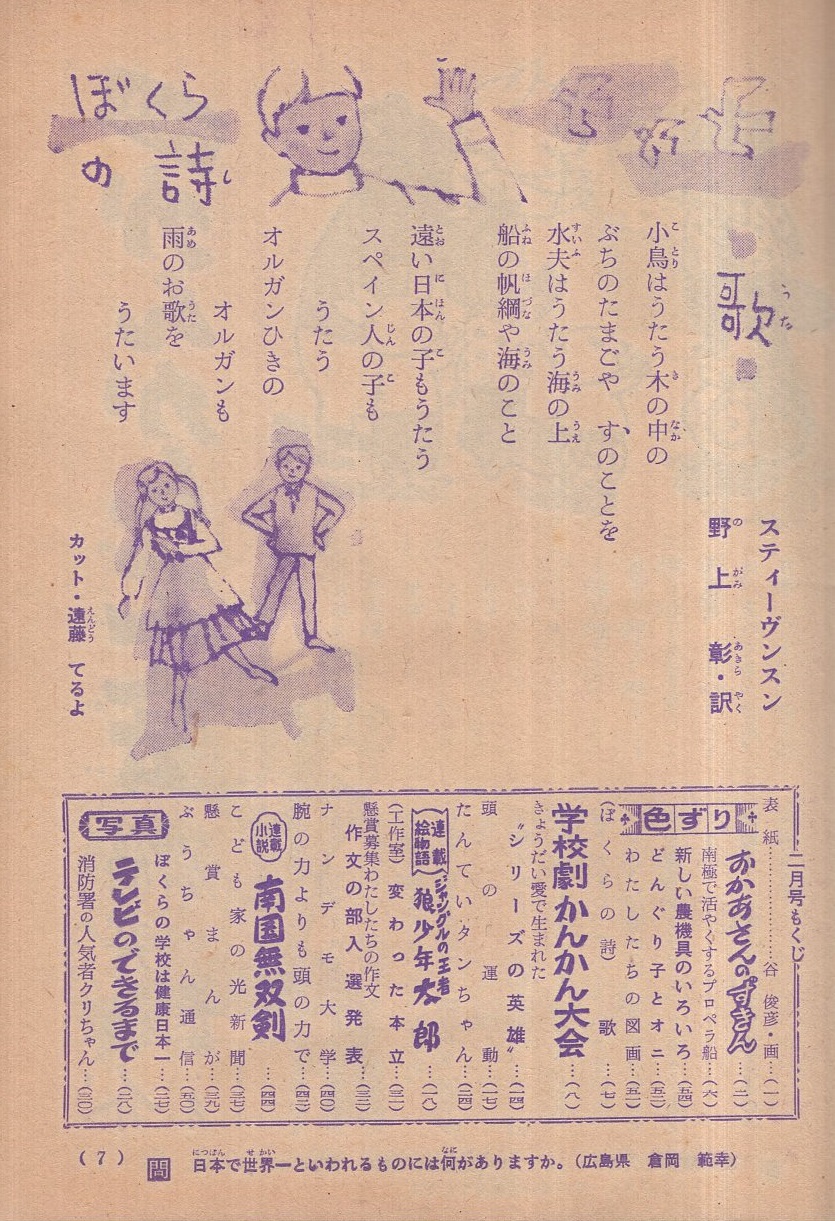 ぼくら
の詩
し
歌
うた
スティーヴンスン
野上 彰・訳
の がみ あきら やく
小鳥はうたう木の中の
こ とり き なか
ぶちのたまごや すのことを
水夫はうたう海の上
すいふ うみ うえ
船の帆綱や海のこと
ふね ほ づな うみ
遠い日本の子もうたう
とお に ほん こ
スペイン人の子も
じん こ
うたう
オルガンひきの
オルガンも
雨のお歌を
あめ うた
うたいます
カット・遠藤 てるよ
えんどう
二月号もくじ
表紙…………………谷 俊彦・画…(一)
色ずり
おかあさんのずきん…(二)
南極で活やくするプロペラ船…(六)
新しい農機具のいろいろ…(五四)
どんぐり子とオニ…(五二)
わたしたちの図画…(五一)
(ぼくらの詩) 歌…(七)
学校劇 かんかん大会…(八)
きょうだい愛で生まれた
“シリーズの英雄”…(一四)
頭の運動…(一七)
たんていタンちゃん…(二四)
連載絵物語
ジャングルの王者
狼少年太郎…(一八)
(工作室) 変わった本立…(三一)
懸賞募集わたしたちの作文
作文の部入選発表…(三二)
ナンデモ大学…(四〇)
腕の力よりも頭の力で…(四二)
連載小説
南国無双剣…(四四)
こども家の光新聞…(三七)
懸賞まんが…(三九)
ぶうちゃん通信…(五〇)
ぼくらの学校は健康日本一…(二七)
写真
テレビのできるまで…(二八)
消防署の人気者クリちゃん…(三〇)
(7)
問 日本で世界一といわれるものには何がありますか。(広島県 倉岡 範幸)
にっぽん せ かい なに